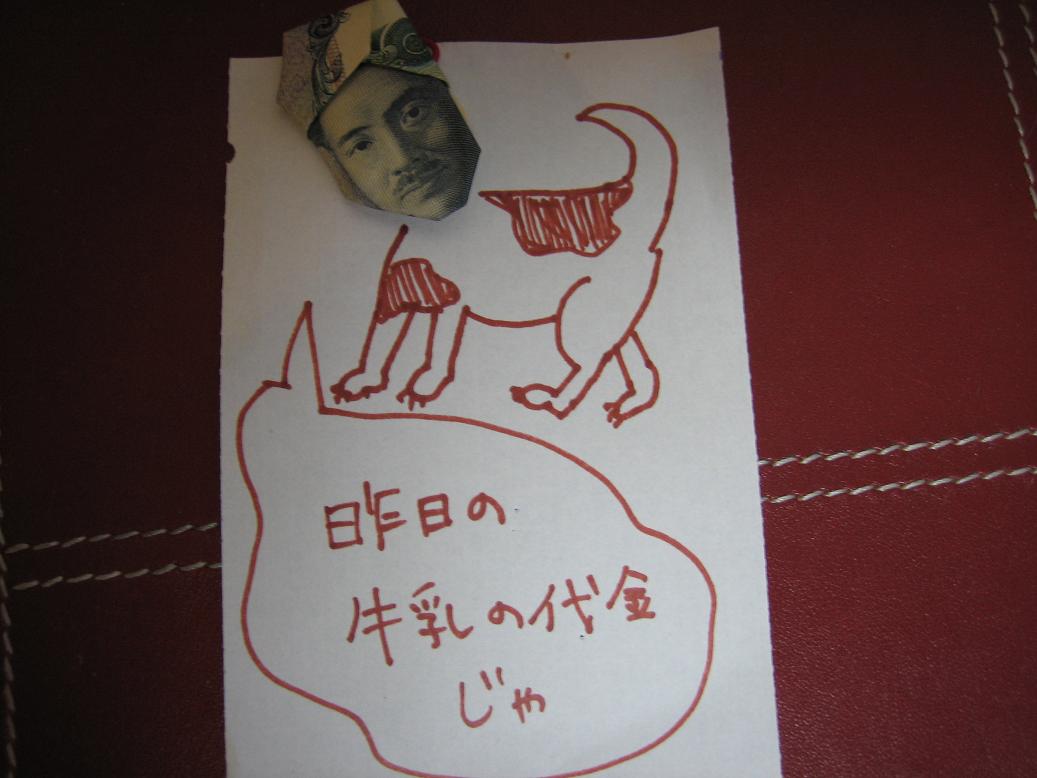 昨日の
牛乳の代金
じゃ